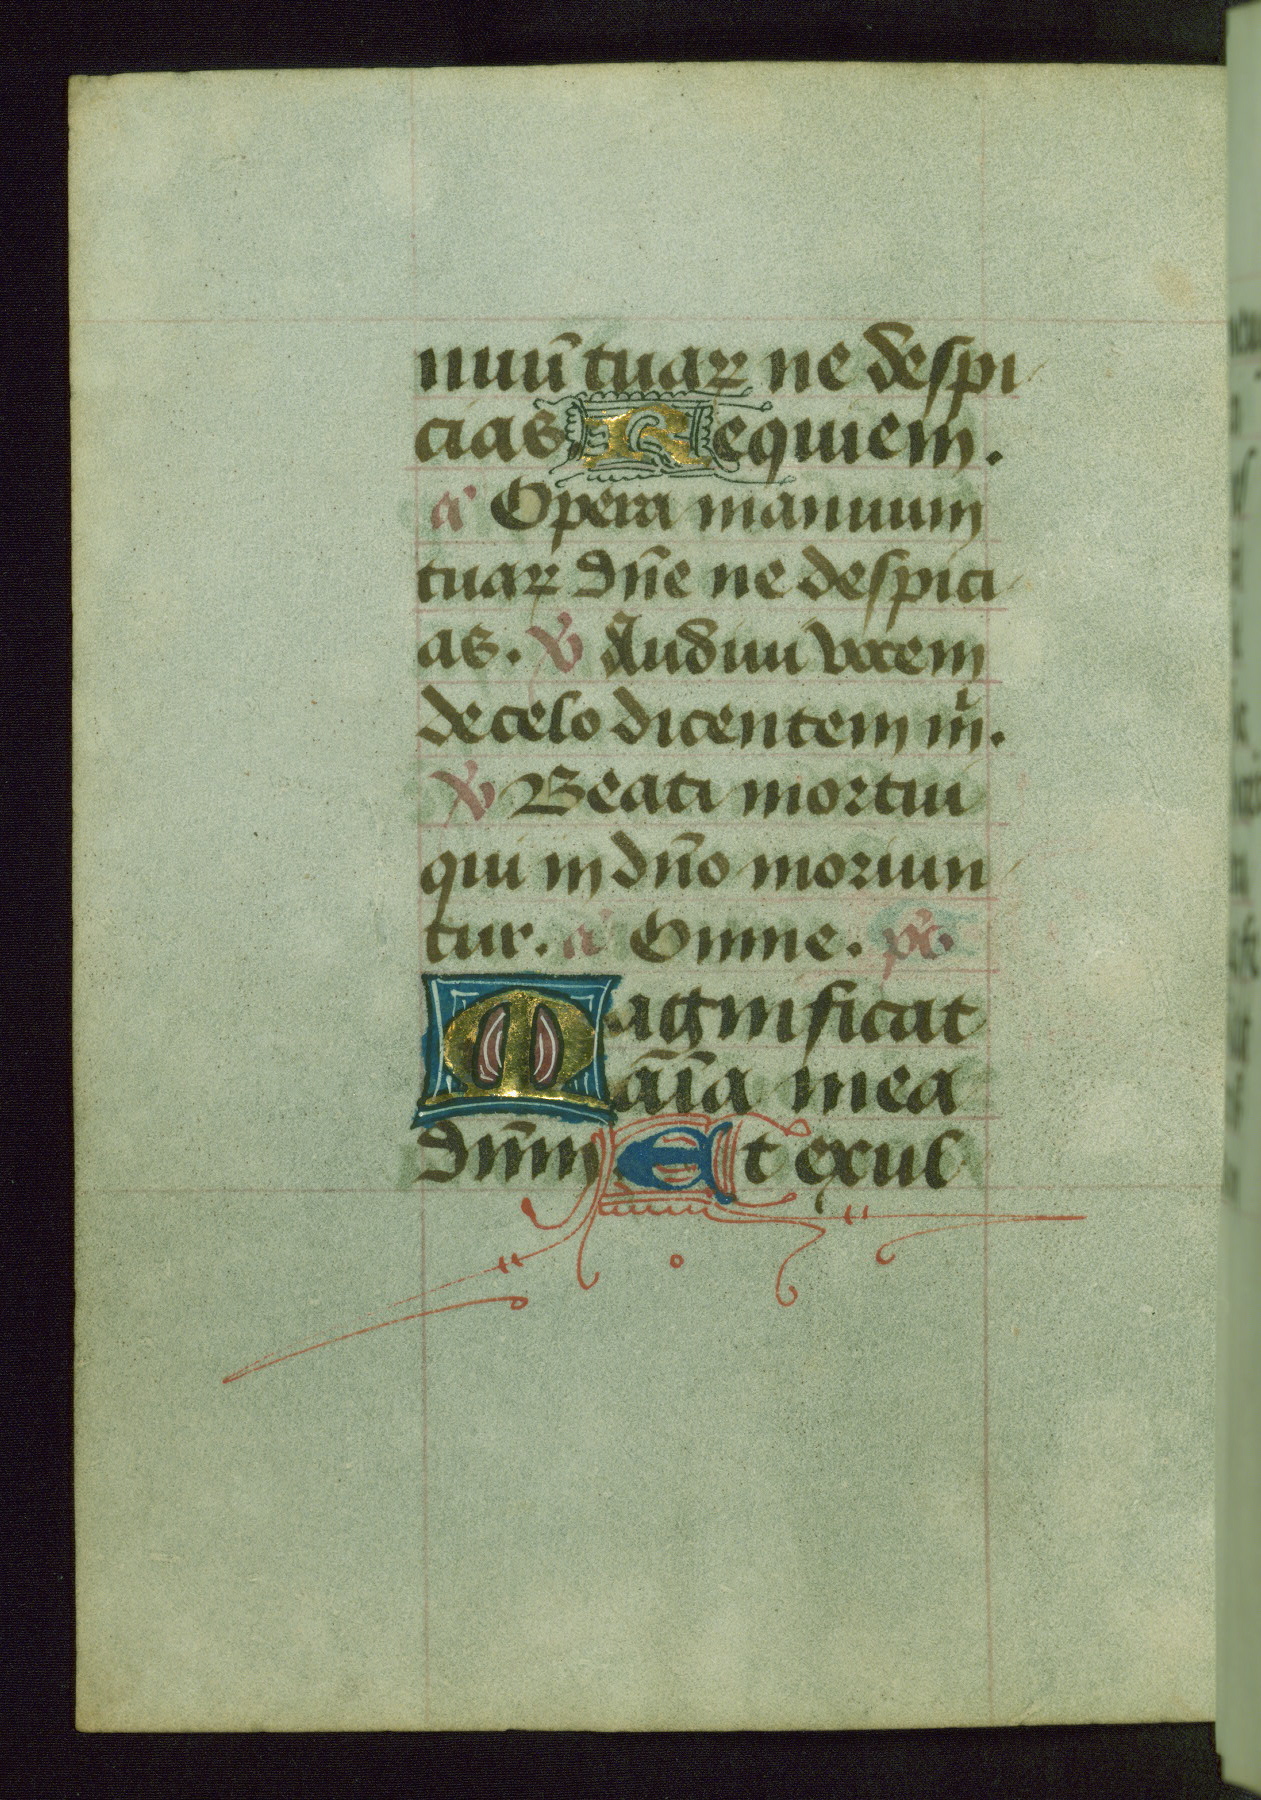 nuū tuaꝝ ne despi
cias Requiem.
a Opera manuum
tuaꝝ dn̄e ne despici
as. v̄ Audiui vocem
de celo dicentem m̄.
v̄ Beati mortui
qui in dn̄o moriun
tur. a Omne. ps
Magnificat
āīa mea
dnm̄ Et exul